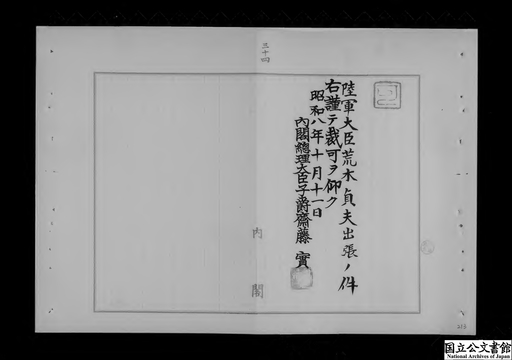 三十四
陸軍大臣荒木貞夫出張ノ件
右謹テ裁可ヲ仰ク
昭和八年十月十一日
内閣總理大臣子爵齋藤實
内閣
国立公文書館
National Archives of Japan